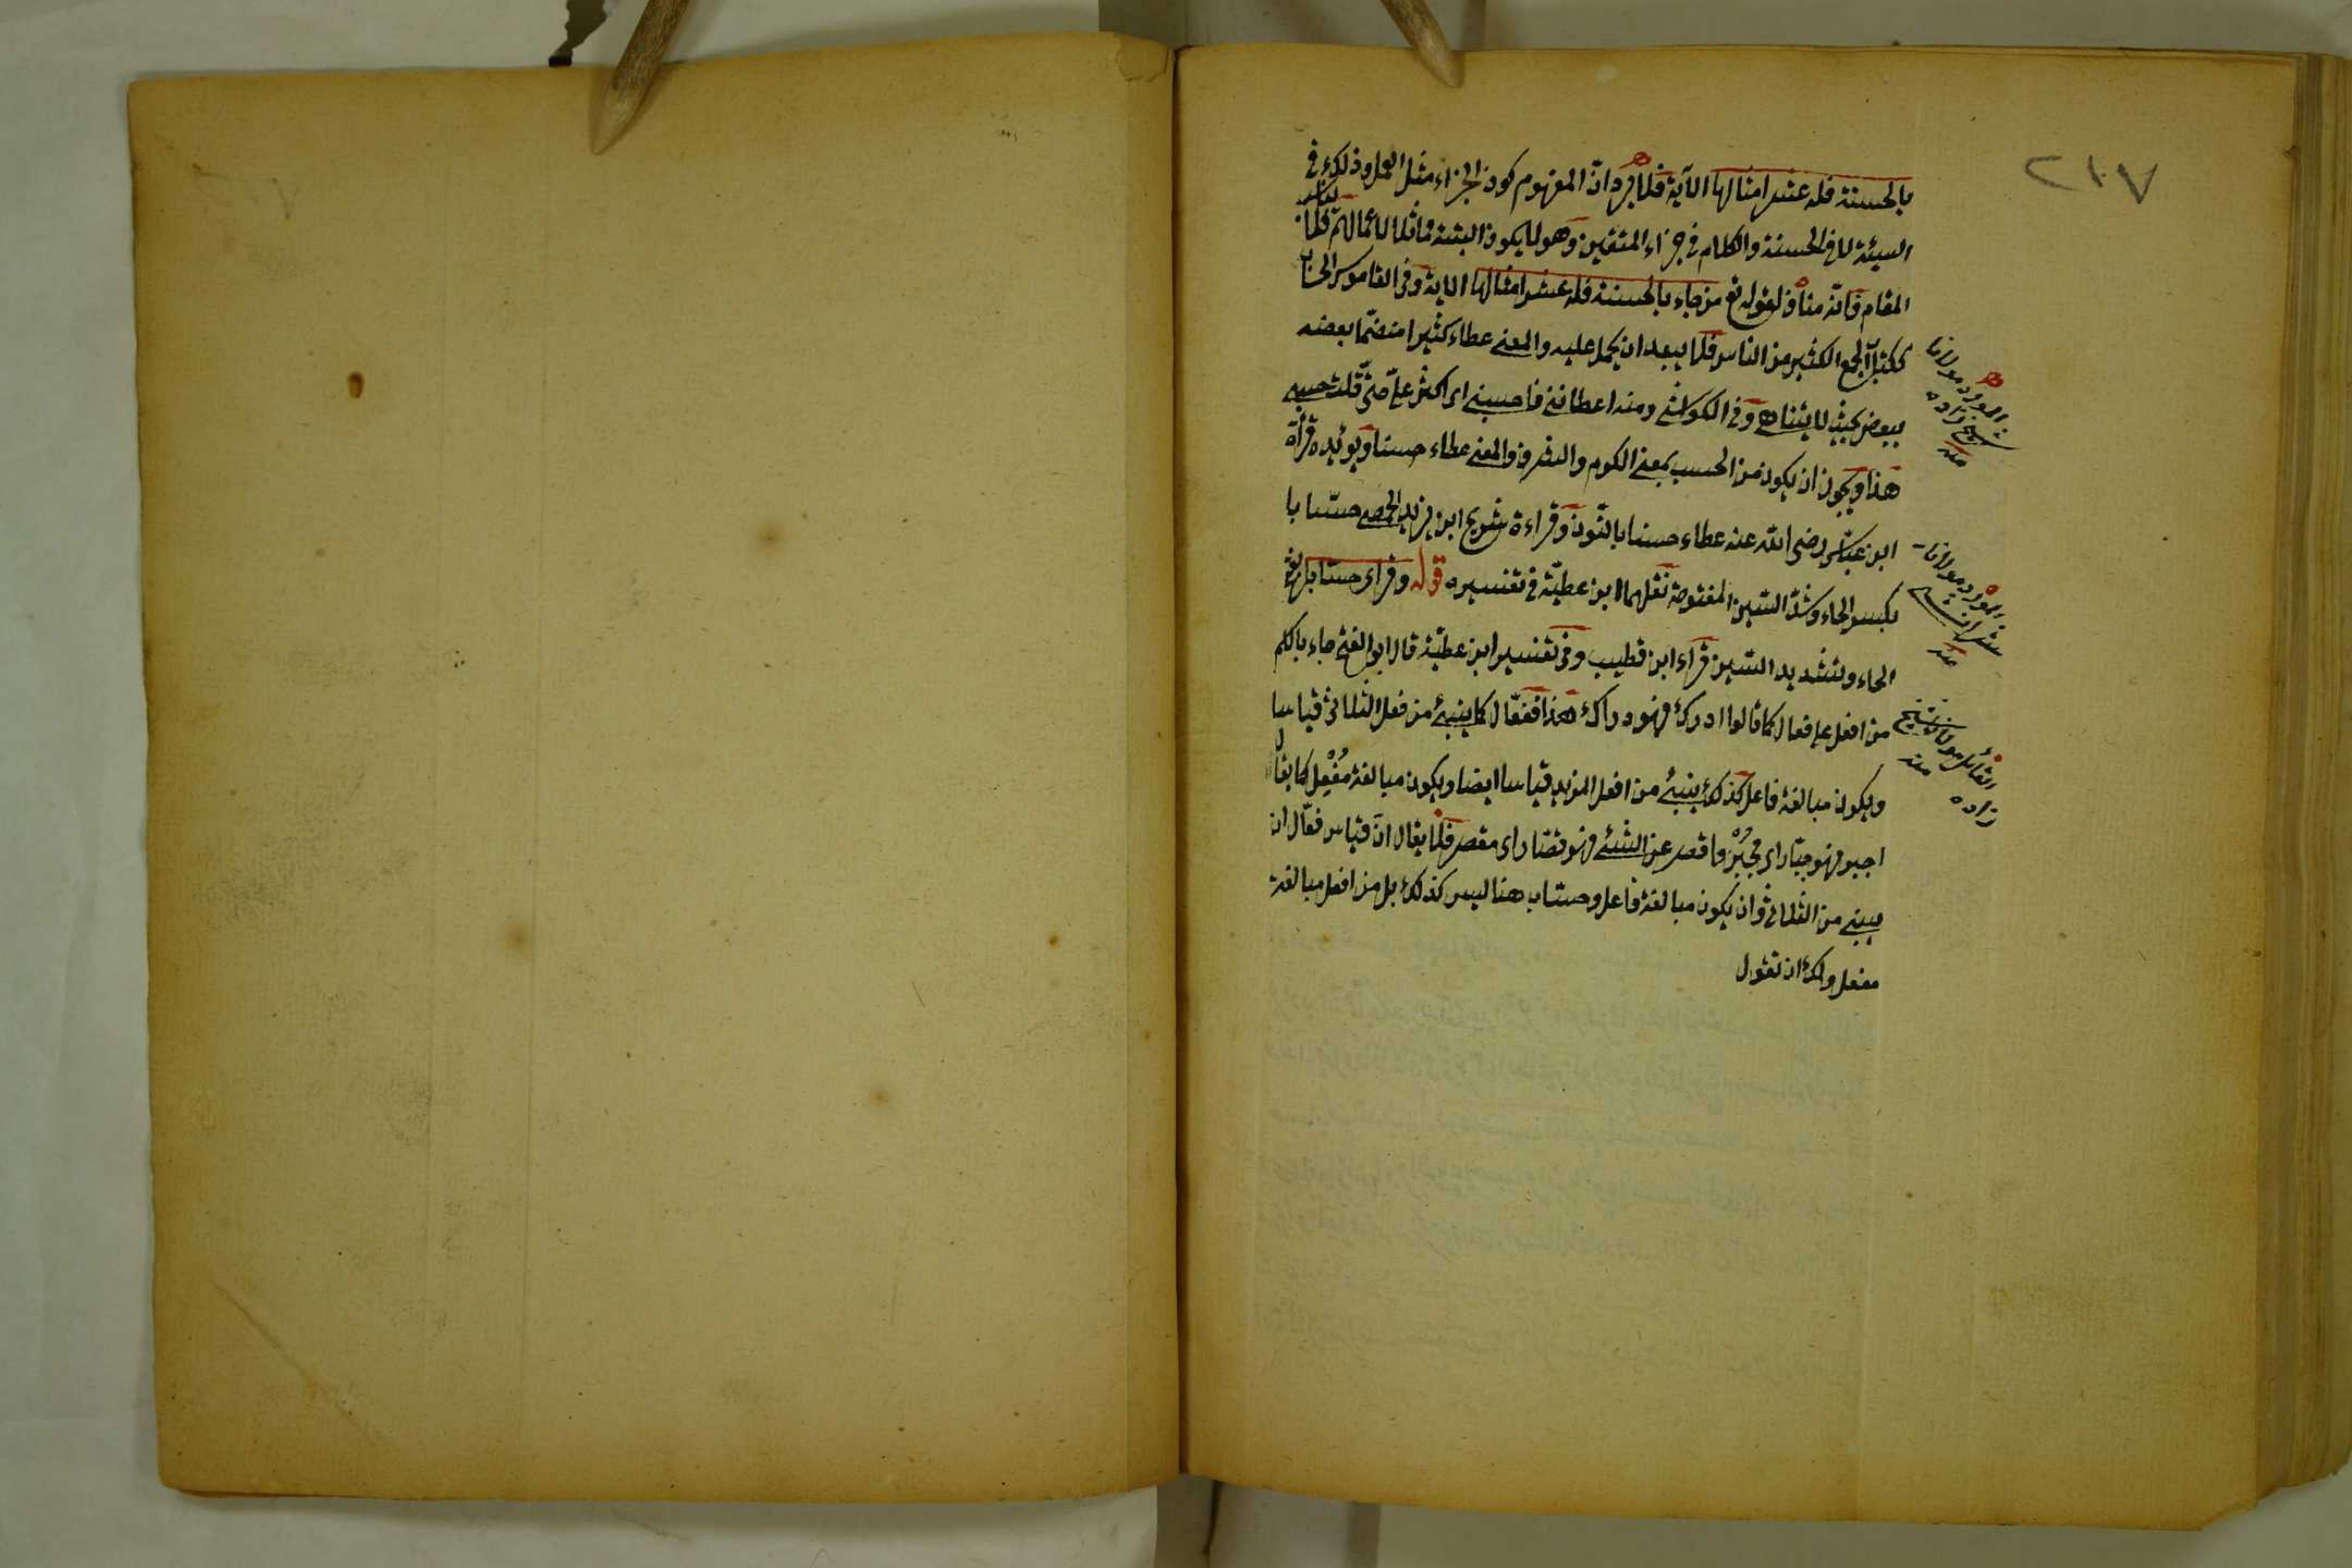 ٢١٧
بالحسنة فله عشر امثالها الآية فلا يرد انّ المفهوم كون الجزاء مثل العمل وذلك في
السيئة لا في الحسنة والكلام في جزاء المتقين وهو لا يكون البتة مماثلا لاعمالهم فلا يناسب
المقام فانه مناف لقوله تع من جاء بالحسنة فله عشر امثالها الاية وفي القاموس الحساب
ككتاب الجمع الكثير من الناس فلا يبعد ان يحمل عليه والمعنى عطاء كثيرا منضمّا بعضه
ببعض بحيث لا يتناهى وفي الكواشي ومنه اعطاني فاحسبني اى اكثر عليّ حتى قلت حسبي
هذا ويجوز ان يكون من الحسب بمعنى الكرم والشرف والمعنى عطاء حسنا ويؤيده قرأة
ابن عبّاس رضى الله عنه عطاء حسنا بالنّون وقراءة شريح ابن يزيد الحمصي حسّابا
بكسر الحاء وشدّ السّين المفتوحة نقلهما ابن عطيّة في تفسيره قوله وقراى حسّابا بفتح
الحاء وتشديد السّين قرأه ابن قطيب وفي تفسير ابن عطيّة قال ابو الفتح جاء بالكلم
من افعل على فعال كما قالوا ادرك فهو دراك هذا ففعّال كما ينبئ من فعل الثلاثي قياسا
ويكون مبالغة فاعل كذلك ينبئ من افعل المزيد قياسا ايضا ويكون مبالغة مُفْعِل كما يقال
اجبر فهو جبّار اى مُجْبِر واقصر عن الشئ فهو قصّار اى مقصر فلا يقال انّ قياس فعّال ان
يبنى من الثلاثي وان يكون مبالغة فاعل وحسّاب هنا ليس كذلك بل من افعل مبالغة
مفعل ولك ان تقول
المورد مولانا
شيخ زاده
منه
المورد مولانا
منه
القائل مولانا شيخ
زاده منه